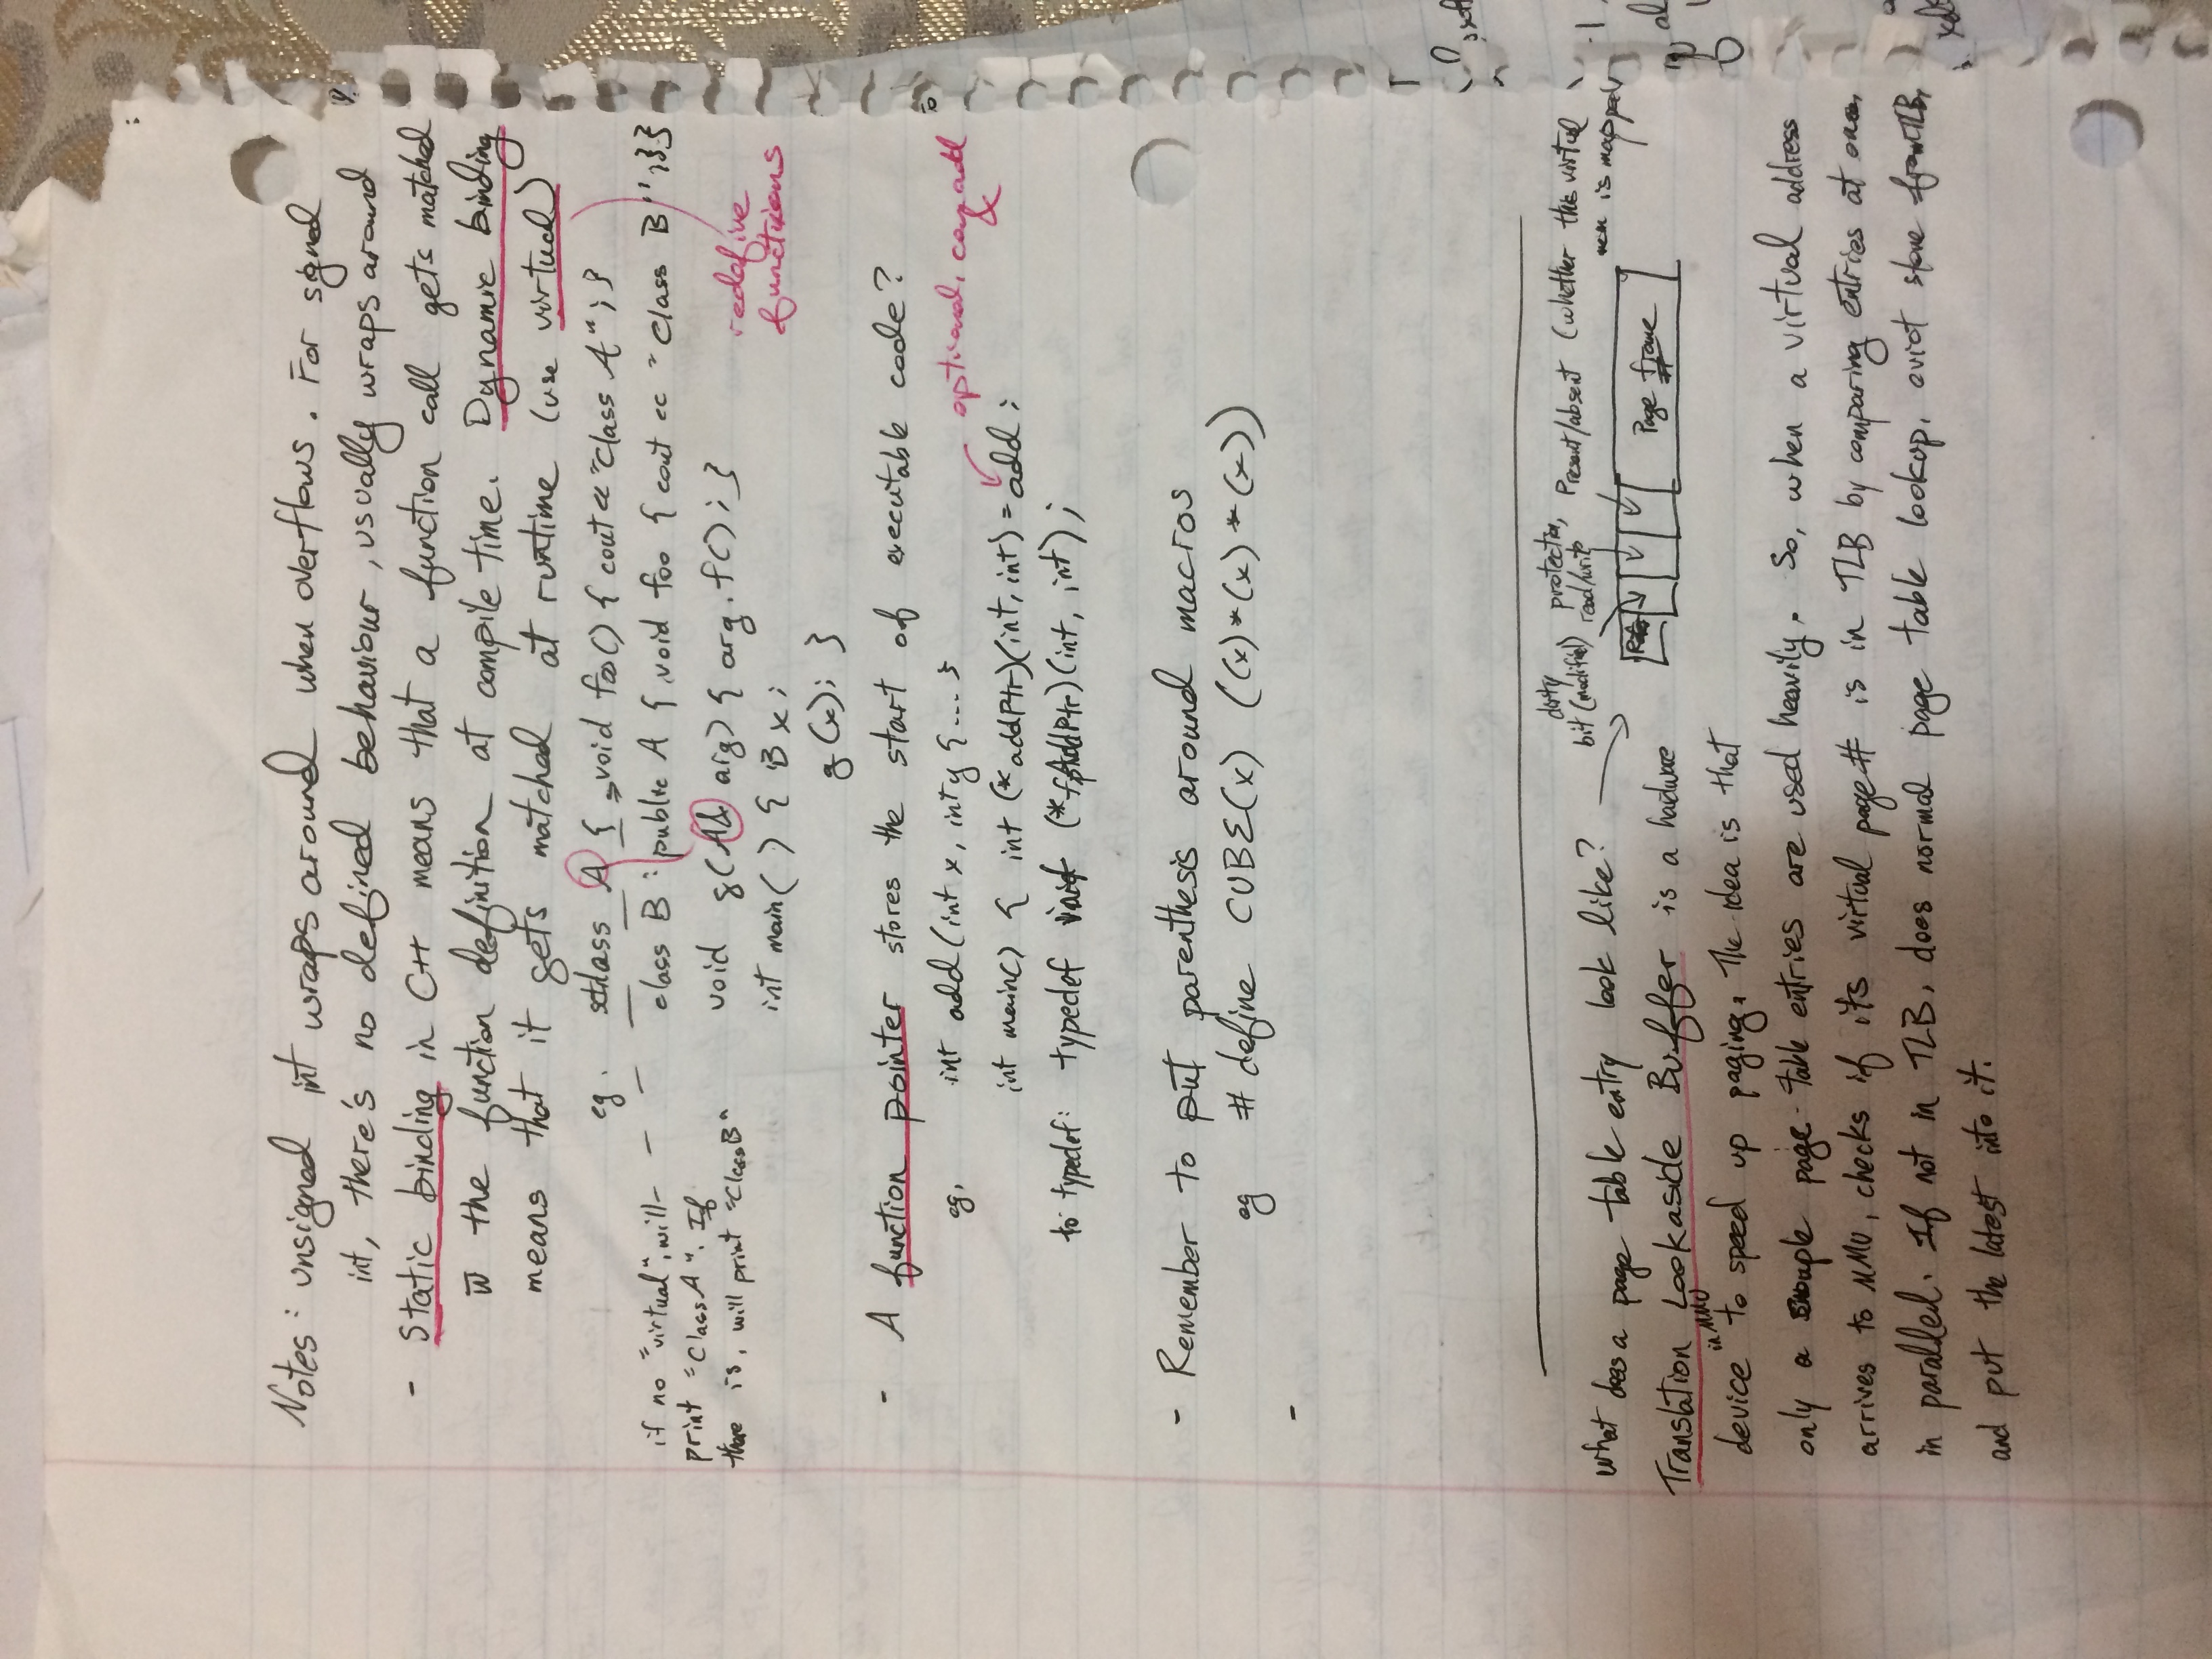 Notes: unsigned int wraps around when overflows. For signed
int, there's no defined behaviour, usually wraps around
- Static binding in C++ means that a function call gets matched
w̅ the function definition at compile time. Dynamic binding
means that it gets matched at runtime (use virtual)
eg. class A { void foo() { cout << "Class A"; }
if no "virtual", will
print "Class A". If
there is, will print "Class B"
class B : public A { void foo { cout << "Class B"; }}
void g(A& arg) { arg.f(); }
redefine
functions
int main() { B x;
g(x); }
- A function pointer stores the start of executable code?
eg. int add (int x, int y { ... }
optional, can add
&
int main() { int (*addPtr)(int, int) = add;
to typedef: typedef (*fpAddPtr)(int, int);
- Remember to put parenthesis around macros
eg # define CUBE(x) ((x)*(x)*(x))
-
what does a page table entry look like?
dirty
bit (modified)
protection,
read/write
Present/absent (whether this virtual
mem is mapped)
Page frame
#
Translation Lookaside Buffer is a hardware
device in MMU to speed up paging. The idea is that
only a couple page table entries are used heavily. So, when a virtual address
arrives to MMU, checks if its virtual page # is in TLB by comparing entries at once,
in paralled. If not in TLB, does normal page table lookup, evict from TLB,
and put the latest into it.